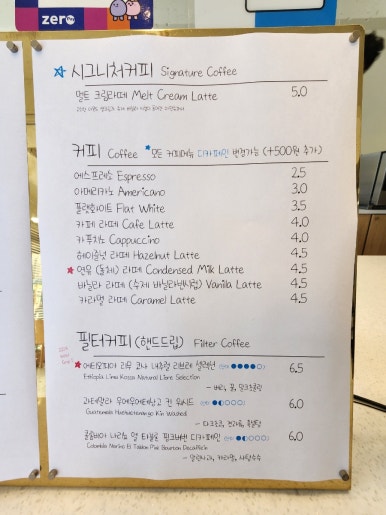 zero
☆ 시그니처커피 Signature Coffee
멜트 크림라떼 Melt Cream Latte 5.0
커피 Coffee *모든 커피메뉴 디카페인 변경가능 (+500원 추가)
에스프레소 Espresso 2.5
아메리카노 Americano 3.0
플랫화이트 Flat White 3.5
카페 라떼 Cafe Latte 4.0
카푸치노 Cappuccino 4.0
헤이즐넛 라떼 Hazelnut Latte 4.5
★ 연유 (돌체) 라떼 Condensed Milk Latte 4.5
바닐라 라떼 (수제 바닐라빈시럽) Vanila Latte 4.5
카라멜 라떼 Caramel Latte 4.5
필터커피 (핸드드립) Filter Coffee
★ 에티오피아 리무 코사 내추럴 리브레 셀렉션 6.5
Ethiopia Limu Kossa Natural Libre Selection
- 베리, 꿀, 밀크초콜릿
과테말라 우에우에테낭고 킨 워시드 6.0
Guatemala Huehuetenango Kin Washed
- 다크초코,
콜롬비아 나리뇨 엘 타블론 핑크버번 디카페인 6.0
Colombia Narino El Tablon Pink Bourbon Decaffein